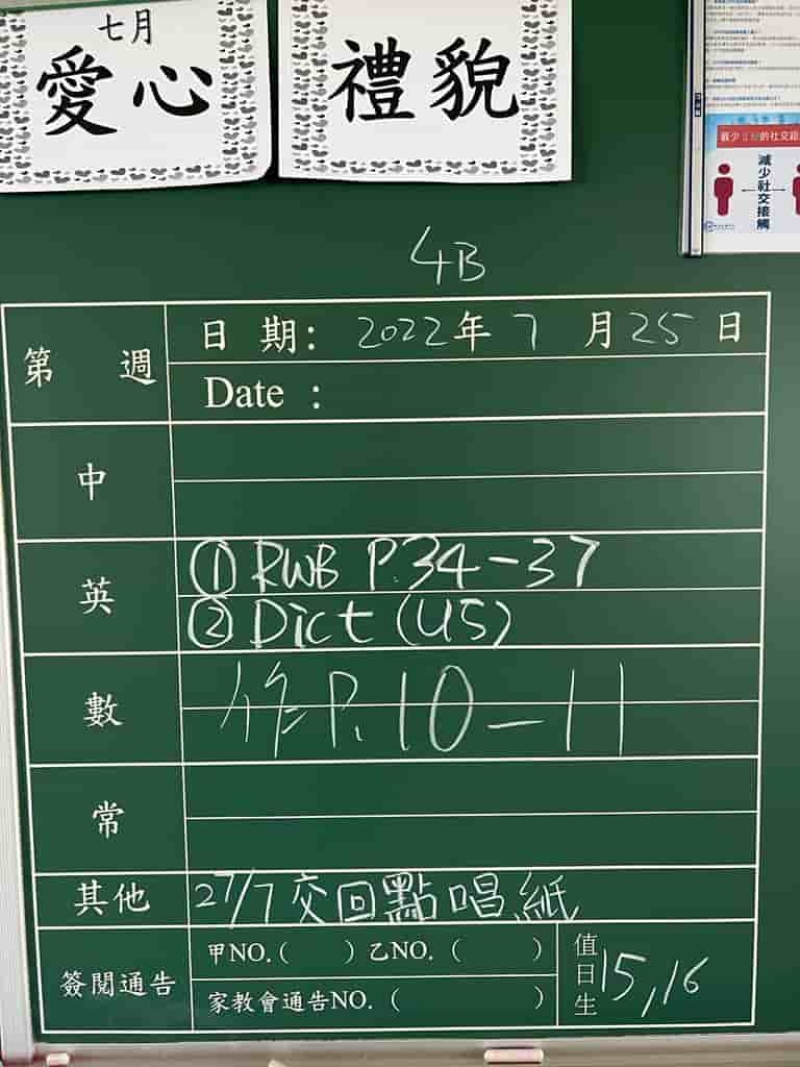 七月
愛心
禮貌
最少
的社交距
減少社交接觸
4B
第 週
日 期: 2022年 7 月 25 日
Date :
中
英
① RWB P.34-37
② Dict (U5)
數
作P.10-11
常
其他
27/7 交回點唱紙
簽閱通告
甲NO.( ) 乙NO. ( )
家教會通告NO. ( )
值日生
15,16